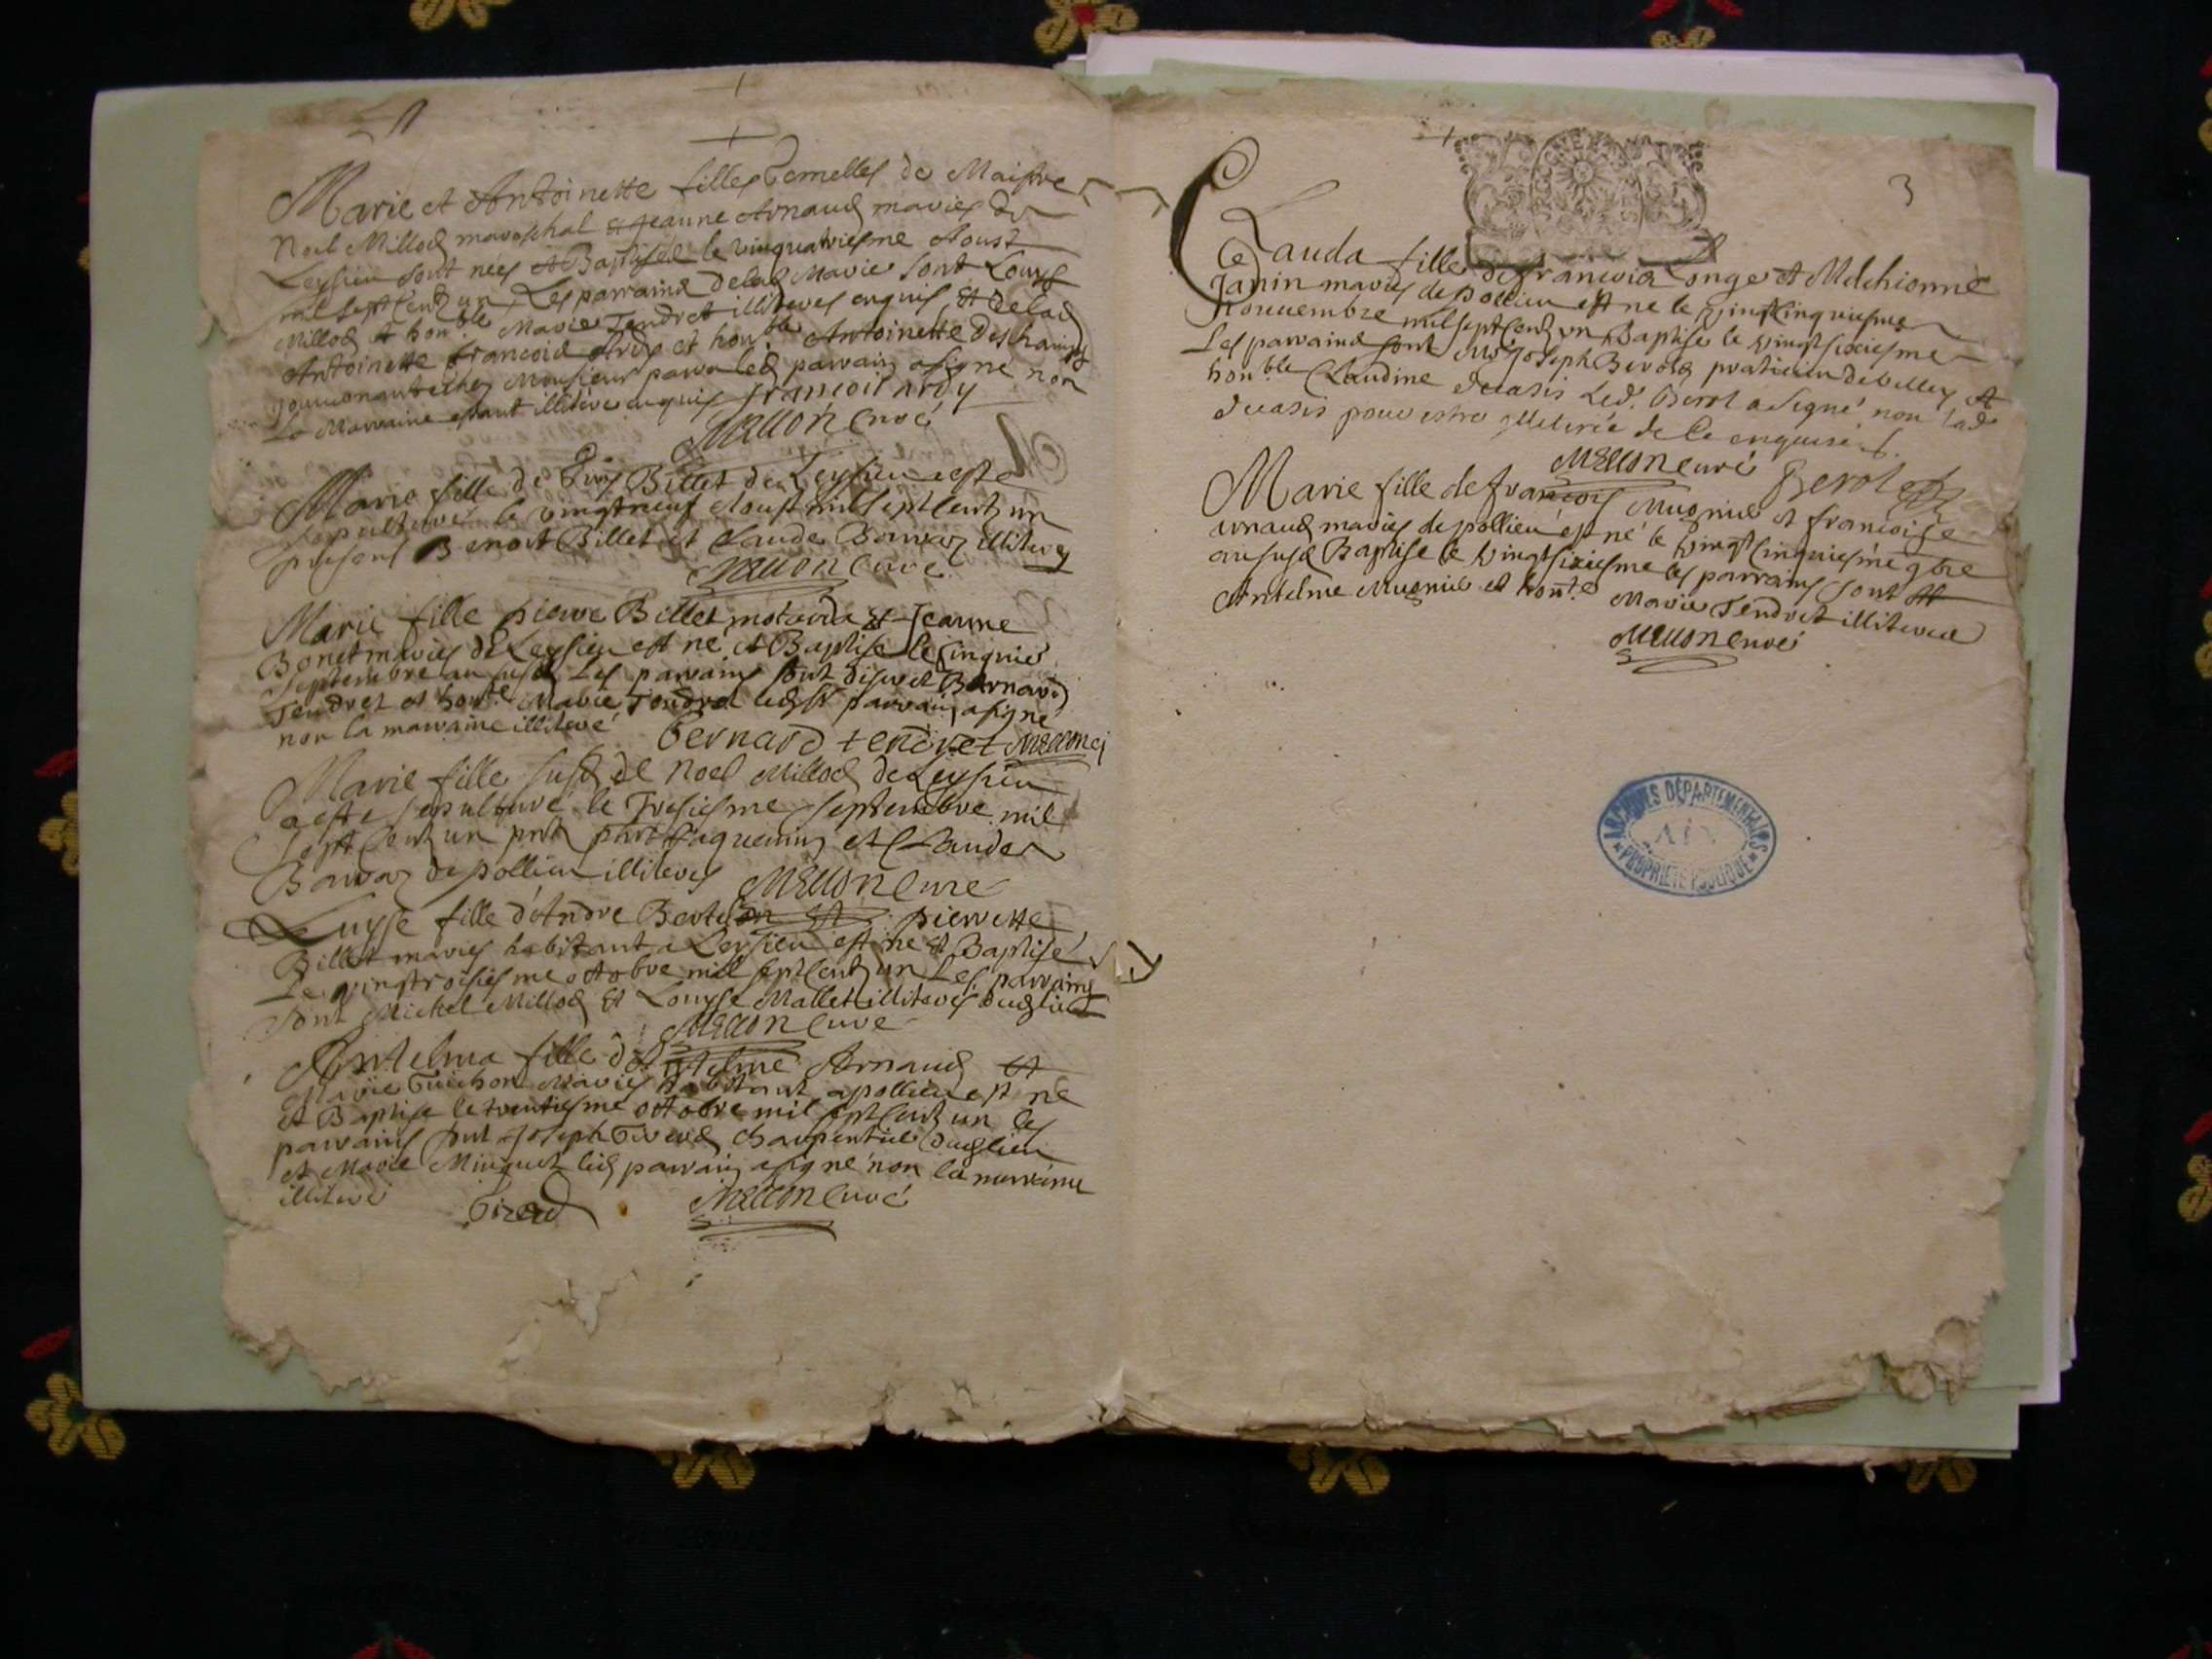 Marie et Antoinette filles Gemelles de Maistre
Noel Millod mareschal et Jeanne Arnaud maries de
Leysieu sont nées et Baptisée le vingquatriesme Aoust
mil sept Cent un Les parrains delad Marie sont Louys
Millod et hon.ble Marie Tendret illiteres enquis et delad
Antoinette francois Ardy et hon.ble Antoinette Deschamps
Monsieur led parrain a signé non
La Marraine estant illitere enquis francois ardy
Mellon Curé
Marie fille de Billet de Leysieu a este
sepulturé le vingtneuf Aoust mil sept Cent un
presens Benoit Billet et Claude Bavoz illiteres
Mellon Curé
Marie fille pierre Billet et Jeanne
Bonet maries de Leysieu est né et Baptisé le Cinquie
Septembre au susd Les parrains sont discret Bernard
Tendret et hon.te Marie Tendret led parrain a signé
non la marraine illiteré bernard tendret Mellon c
Marie fille susd de Noel Millod de Leysieu
a este sepulturé le Tresiesme septembre mil
sept Cent un pnt Jaquemin et Claude
Bavoz de pollieu illiteres Mellon Cure
Luyse fille d'Andre et pierrette
Billet maries habitant a Leysieu est né et Baptisé
Le vingtroisiesme octobre mil sept Cent un Les parrains
sont Michel Millod et Louyse Mallet illiteres
Mellon Curé
Antelma fille d'Antelme Arnaud et
Marie Guichon Maries habitant a pollieu est né
et Baptisé le trentiesme octobre mil sept Cent un les
parrains sont Joseph Girerd Charpentier
et Marie led parrain a signé non la marraine
illiteré Girerd Mellon Curé
3
Clauda fille de francois Longe et Melchionne
Janin maries de pollieu est né le vingtcinquiesme
Nouvembre mil sept Cent un Baptisé le vingt sixiesme
Les parrains sont Mr Joseph Berod praticien de belley et
hon.ble Claudine Led. Berod a signé non lad
pour estre illiteré de Ce enquise
Mellon Curé Berod
Marie fille de francois Mugnié et francoise
arnaud maries de pollieu est né le vingt Cinquiesme 9bre
au susd Baptisé le vingt sixiesme les parrains sont
Antelme Mugnié et hon.te Marie Tendret illiteres
Mellon Curé
ARCHIVES DÉPARTEMENTALES
AIN
PROPRIÉTÉ PUBLIQUE